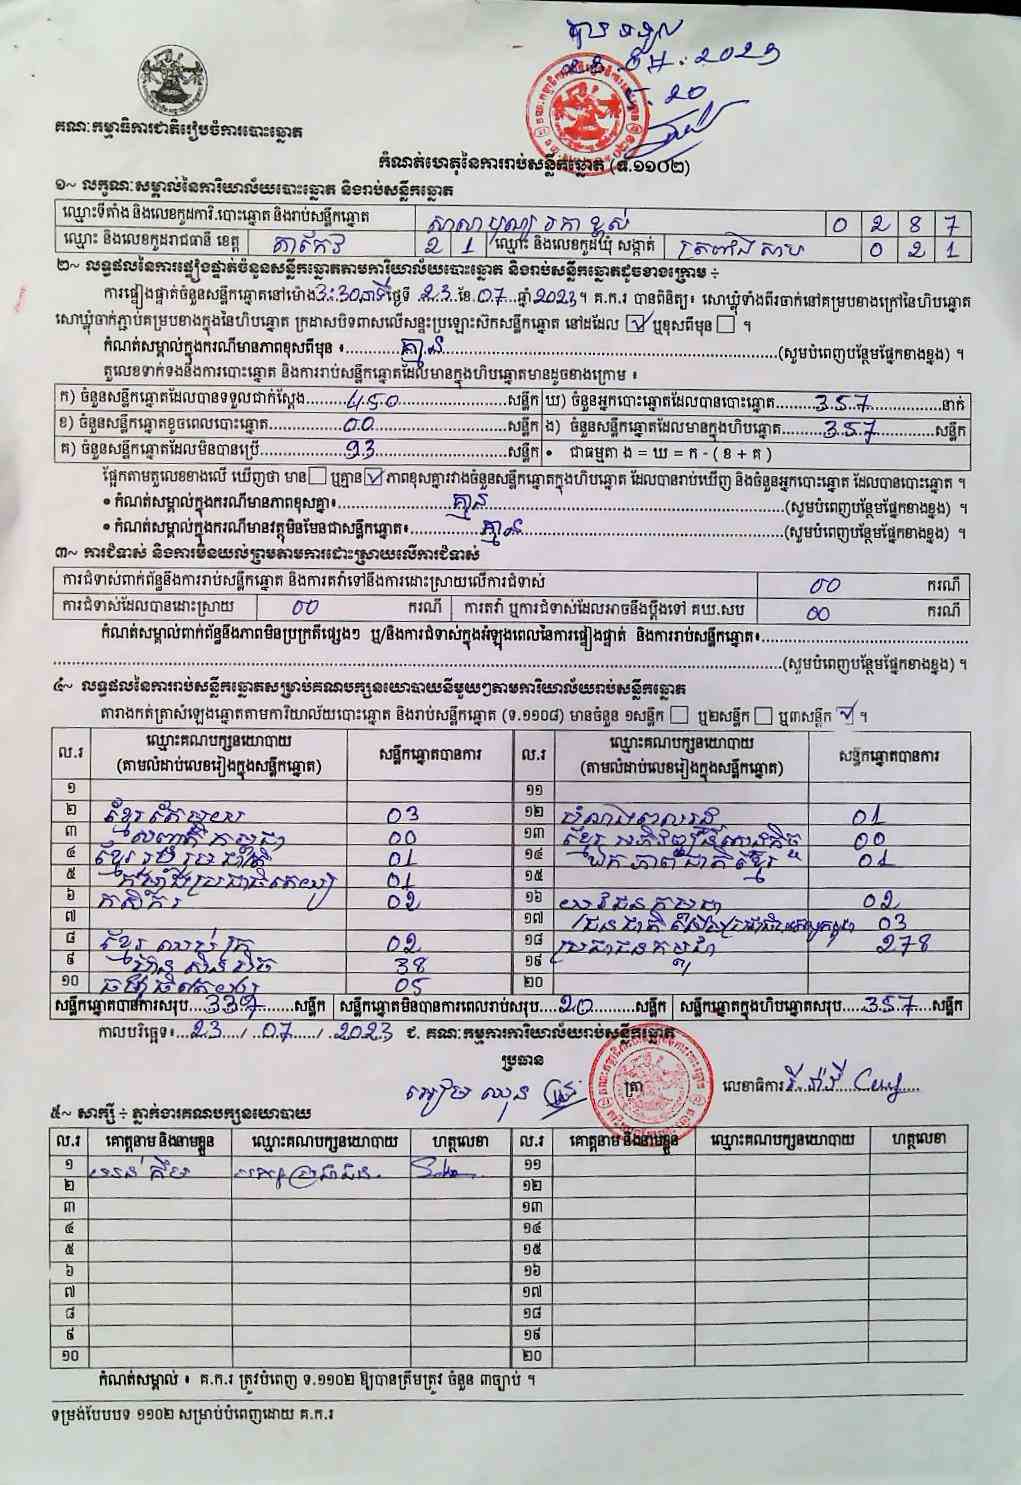 បានទទួល
23 07. 2023
គណៈកម្មាធិការជាតិរៀបចំការបោះឆ្នោត
កំណត់ហេតុនៃការរាប់សន្លឹកឆ្នោត (ទ.១១០២)
១~ លក្ខណៈសម្គាល់នៃការិយាល័យបោះឆ្នោត និងរាប់សន្លឹកឆ្នោត
ឈ្មោះទីតាំង និងលេខកូដការិ.បោះឆ្នោត និងរាប់សន្លឹកឆ្នោត សាលាបុណ្យ រកាខ្ពស់ 0 2 8 7
ឈ្មោះ និងលេខកូដរាជធានី ខេត្ត តាកែវ 2 1 ឈ្មោះ និងលេខកូដឃុំ សង្កាត់ ត្រពាំងសាប 0 2 1
២~ លទ្ធផលនៃការផ្ទៀងផ្ទាត់ចំនួនសន្លឹកឆ្នោតតាមការិយាល័យបោះឆ្នោត និងរាប់សន្លឹកឆ្នោតដូចខាងក្រោម ÷
ការផ្ទៀងផ្ទាត់ចំនួនសន្លឹកឆ្នោតនៅម៉ោង 3:30នាទី ថ្ងៃទី 23 ខែ 07 ឆ្នាំ 2023។ គ.ក.រ បានពិនិត្យ៖ សោឃ្លុំទាំងពីរចាក់នៅគម្របខាងក្រៅនៃហិបឆ្នោត
សោឃ្លុំចាក់ភ្ជាប់គម្របខាងក្នុងនៃហិបឆ្នោត ក្រដាសបិទពាសលើសន្ទះប្រឡោះស៊កសន្លឹកឆ្នោត នៅដដែល ☑ ឬខុសពីមុន ☐ ។
កំណត់សម្គាល់ក្នុងករណីមានភាពខុសពីមុន ៖ គ្មាន (សូមបំពេញបន្ថែមផ្នែកខាងខ្នង) ។
តួលេខទាក់ទងនឹងការបោះឆ្នោត និងការរាប់សន្លឹកឆ្នោតដែលមានក្នុងហិបឆ្នោតមានដូចខាងក្រោម ៖
ក) ចំនួនសន្លឹកឆ្នោតដែលបានទទួលជាក់ស្តែង 450 សន្លឹក ឃ) ចំនួនអ្នកបោះឆ្នោតដែលបានបោះឆ្នោត 357 នាក់
ខ) ចំនួនសន្លឹកឆ្នោតខូចពេលបោះឆ្នោត 00 សន្លឹក ង) ចំនួនសន្លឹកឆ្នោតដែលមានក្នុងហិបឆ្នោត 357 សន្លឹក
គ) ចំនួនសន្លឹកឆ្នោតដែលមិនបានប្រើ 93 សន្លឹក • ជាធម្មតា ង = ឃ = ក - ( ខ + គ )
ផ្អែកតាមតួលេខខាងលើ ឃើញថា មាន ☐ ឬគ្មាន ☑ ភាពខុសគ្នារវាងចំនួនសន្លឹកឆ្នោតក្នុងហិបឆ្នោត ដែលបានរាប់ឃើញ និងចំនួនអ្នកបោះឆ្នោត ដែលបានបោះឆ្នោត ។
• កំណត់សម្គាល់ក្នុងករណីមានភាពខុសគ្នា៖ គ្មាន (សូមបំពេញបន្ថែមផ្នែកខាងខ្នង) ។
• កំណត់សម្គាល់ក្នុងករណីមានវត្ថុមិនមែនជាសន្លឹកឆ្នោត៖ គ្មាន (សូមបំពេញបន្ថែមផ្នែកខាងខ្នង) ។
៣~ ការជំទាស់ និងការមិនយល់ព្រមតាមការដោះស្រាយលើការជំទាស់
ការជំទាស់ពាក់ព័ន្ធនឹងការរាប់សន្លឹកឆ្នោត និងការតវ៉ាទៅនឹងការដោះស្រាយលើការជំទាស់ 00 ករណី
ការជំទាស់ដែលបានដោះស្រាយ 00 ករណី ការតវ៉ា ឬការជំទាស់ដែលអាចនឹងប្តឹងទៅ គឃ.សប 00 ករណី
កំណត់សម្គាល់ពាក់ព័ន្ធនឹងភាពមិនប្រក្រតីផ្សេងៗ ឬ/និងការជំទាស់ក្នុងអំឡុងពេលនៃការផ្ទៀងផ្ទាត់ និងការរាប់សន្លឹកឆ្នោត៖
(សូមបំពេញបន្ថែមផ្នែកខាងខ្នង) ។
៤~ លទ្ធផលនៃការរាប់សន្លឹកឆ្នោតសម្រាប់គណបក្សនយោបាយនីមួយៗតាមការិយាល័យរាប់សន្លឹកឆ្នោត
តារាងកត់ត្រាសំឡេងឆ្នោតតាមការិយាល័យបោះឆ្នោត និងរាប់សន្លឹកឆ្នោត (ទ.១១០៨) មានចំនួន ១សន្លឹក ☐ ឬ២សន្លឹក ☐ ឬ៣សន្លឹក ☑ ។
ល.រ ឈ្មោះគណបក្សនយោបាយ (តាមលំដាប់លេខរៀងក្នុងសន្លឹកឆ្នោត) សន្លឹកឆ្នោតបានការ ល.រ ឈ្មោះគណបក្សនយោបាយ (តាមលំដាប់លេខរៀងក្នុងសន្លឹកឆ្នោត) សន្លឹកឆ្នោតបានការ
១ ១១
២ ខ្មែរតែមួយ 03 ១២ 01
៣ សញ្ជាតិកម្ពុជា 00 ១៣ ខ្មែរអភិវឌ្ឍន៍សេដ្ឋកិច្ច 00
៤ ខ្មែររួបរួមជាតិ 01 ១៤ ឯកភាពជាតិខ្មែរ 01
៥ កម្លាំងប្រជាធិបតេយ្យ 01 ១៥
៦ កសិករ 02 ១៦ យុវជនកម្ពុជា 02
៧ ១៧ ជនជាតិដើមប្រជាធិបតេយ្យកម្ពុជា 03
៨ ខ្មែរឈប់ក្រ 02 ១៨ ប្រជាជនកម្ពុជា 278
៩ ហ៊្វុនស៊ិនប៉ិច 38 ១៩
១០ ធម្មាធិបតេយ្យ 05 ២០
សន្លឹកឆ្នោតបានការសរុប 337 សន្លឹក សន្លឹកឆ្នោតមិនបានការពេលរាប់សរុប 20 សន្លឹក សន្លឹកឆ្នោតក្នុងហិបឆ្នោតសរុប 357 សន្លឹក
កាលបរិច្ឆេទ៖ 23 / 07 / 2023 ជ. គណៈកម្មការការិយាល័យរាប់សន្លឹកឆ្នោត
ប្រធាន
ត្រា លេខាធិការ
៥~ សាក្សី ÷ ភ្នាក់ងារគណបក្សនយោបាយ
ល.រ គោត្តនាម និងនាមខ្លួន ឈ្មោះគណបក្សនយោបាយ ហត្ថលេខា ល.រ គោត្តនាម និងនាមខ្លួន ឈ្មោះគណបក្សនយោបាយ ហត្ថលេខា
១ បក្សប្រជាជន ១១
២ ១២
៣ ១៣
៤ ១៤
៥ ១៥
៦ ១៦
៧ ១៧
៨ ១៨
៩ ១៩
១០ ២០
កំណត់សម្គាល់ ៖ គ.ក.រ ត្រូវបំពេញ ទ.១១០២ ឱ្យបានត្រឹមត្រូវ ចំនួន ៣ច្បាប់ ។
ទម្រង់បែបបទ ១១០២ សម្រាប់បំពេញដោយ គ.ក.រ